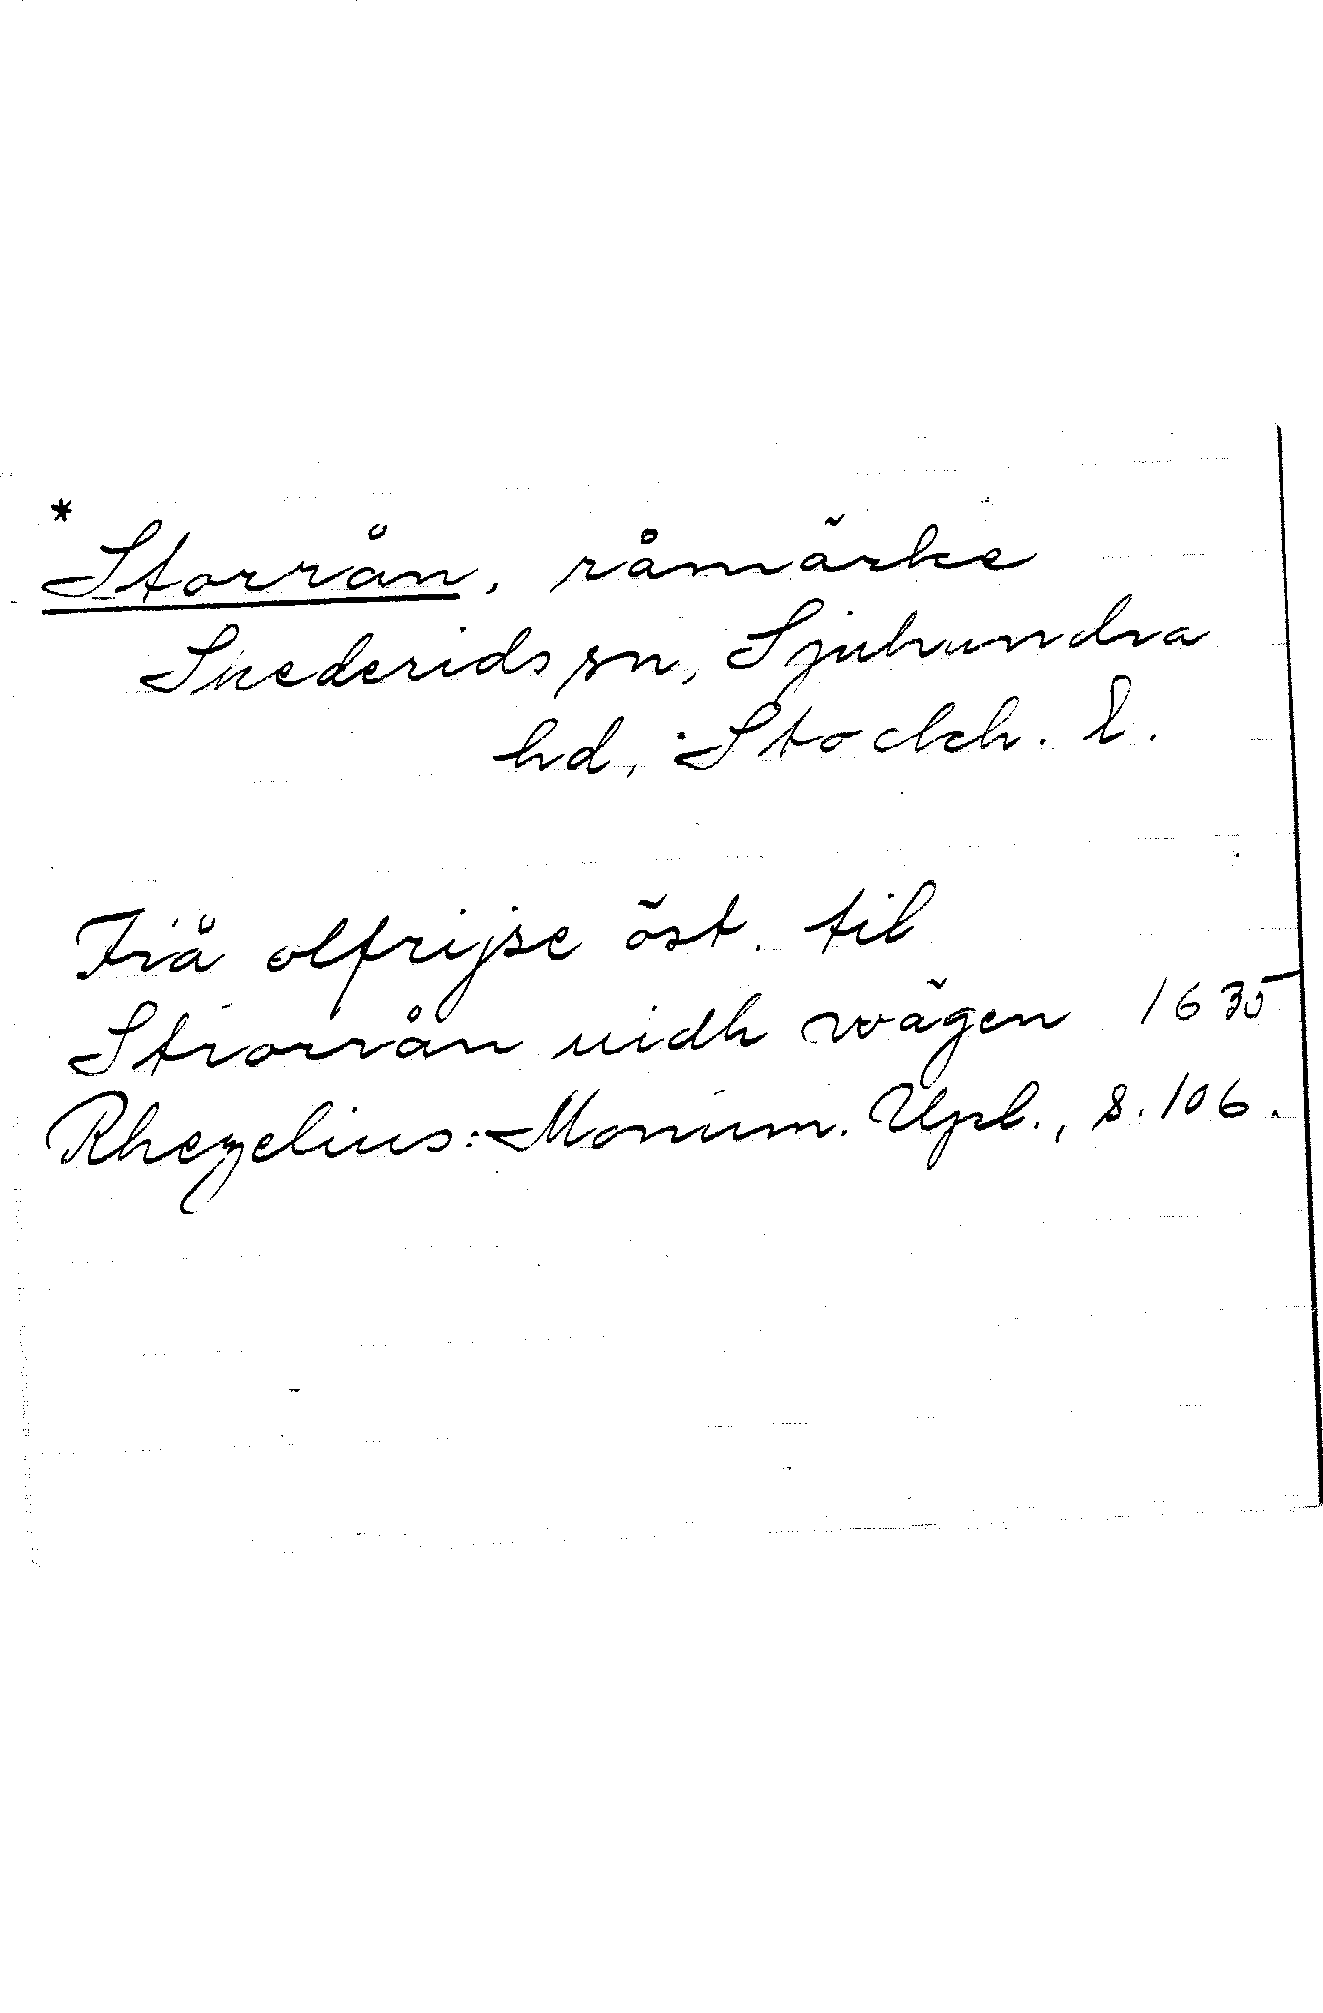 * Storrån, råmärke
Skederids sn, Sjuhundra
hd, Stockh. l.
Frå olfrijse öst. til
Storrån uidh wägen 1635
Rhezelius: Monum. Upl., s. 106.